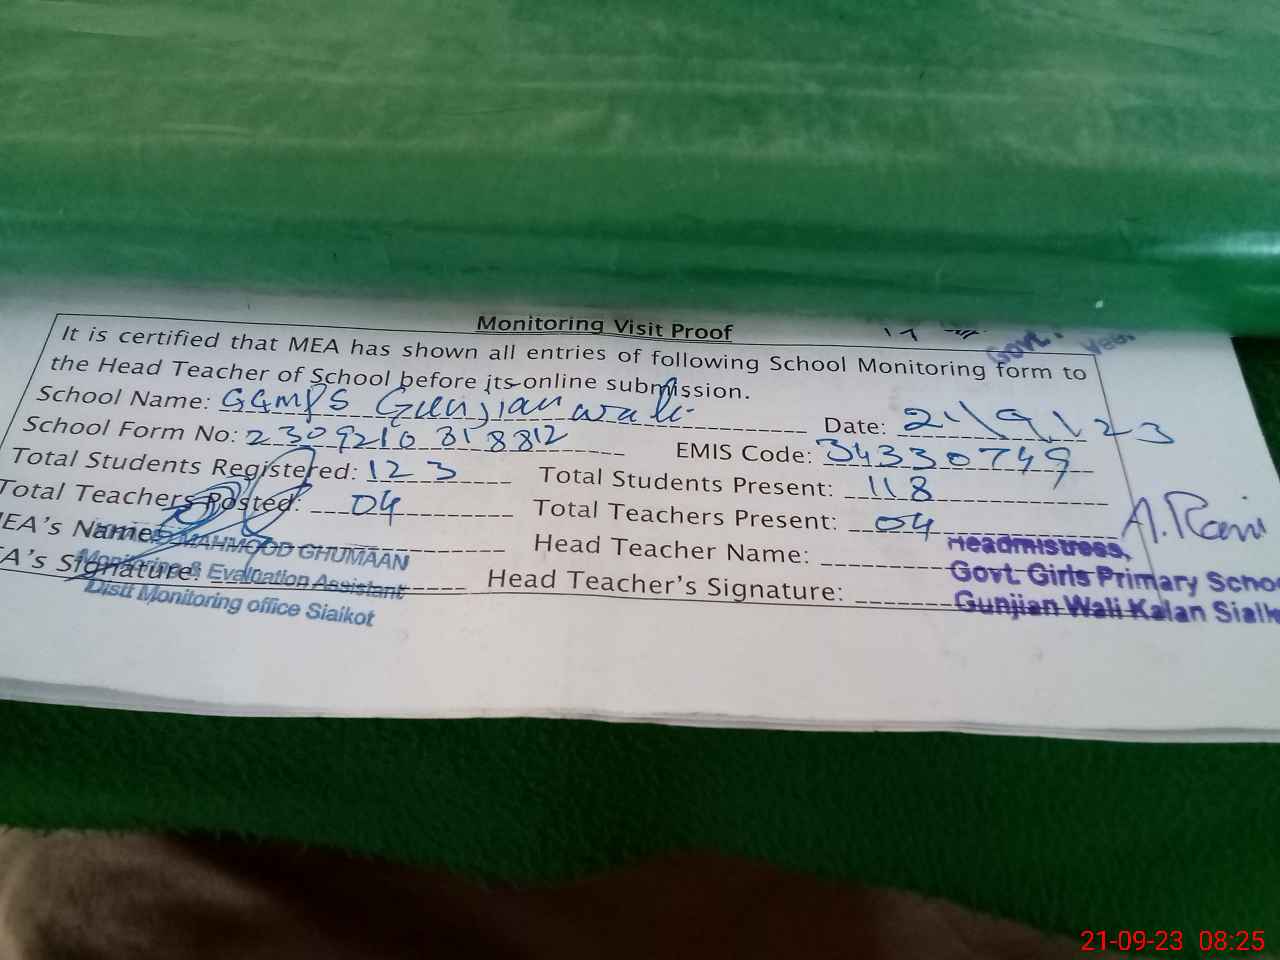 Monitoring Visit Proof
It is certified that MEA has shown all entries of following School Monitoring form to
the Head Teacher of School before its online submission.
School Name: GGMPS Gunjian wali Date: 21/9/23
School Form No: 2309210818812 EMIS Code: 34330749
Total Students Registered: 123 Total Students Present: 118
Total Teachers Posted: 04 Total Teachers Present: 04
MEA's Name: MAHMOOD GHUMAAN Head Teacher Name: A. Rani
Signature: Head Teacher's Signature:
Monitoring & Evaluation Assistant
Distt Monitoring office Sialkot
Headmistress,
Govt. Girls Primary Schoo
Gunjian Wali Kalan Sialk
21-09-23 08:25